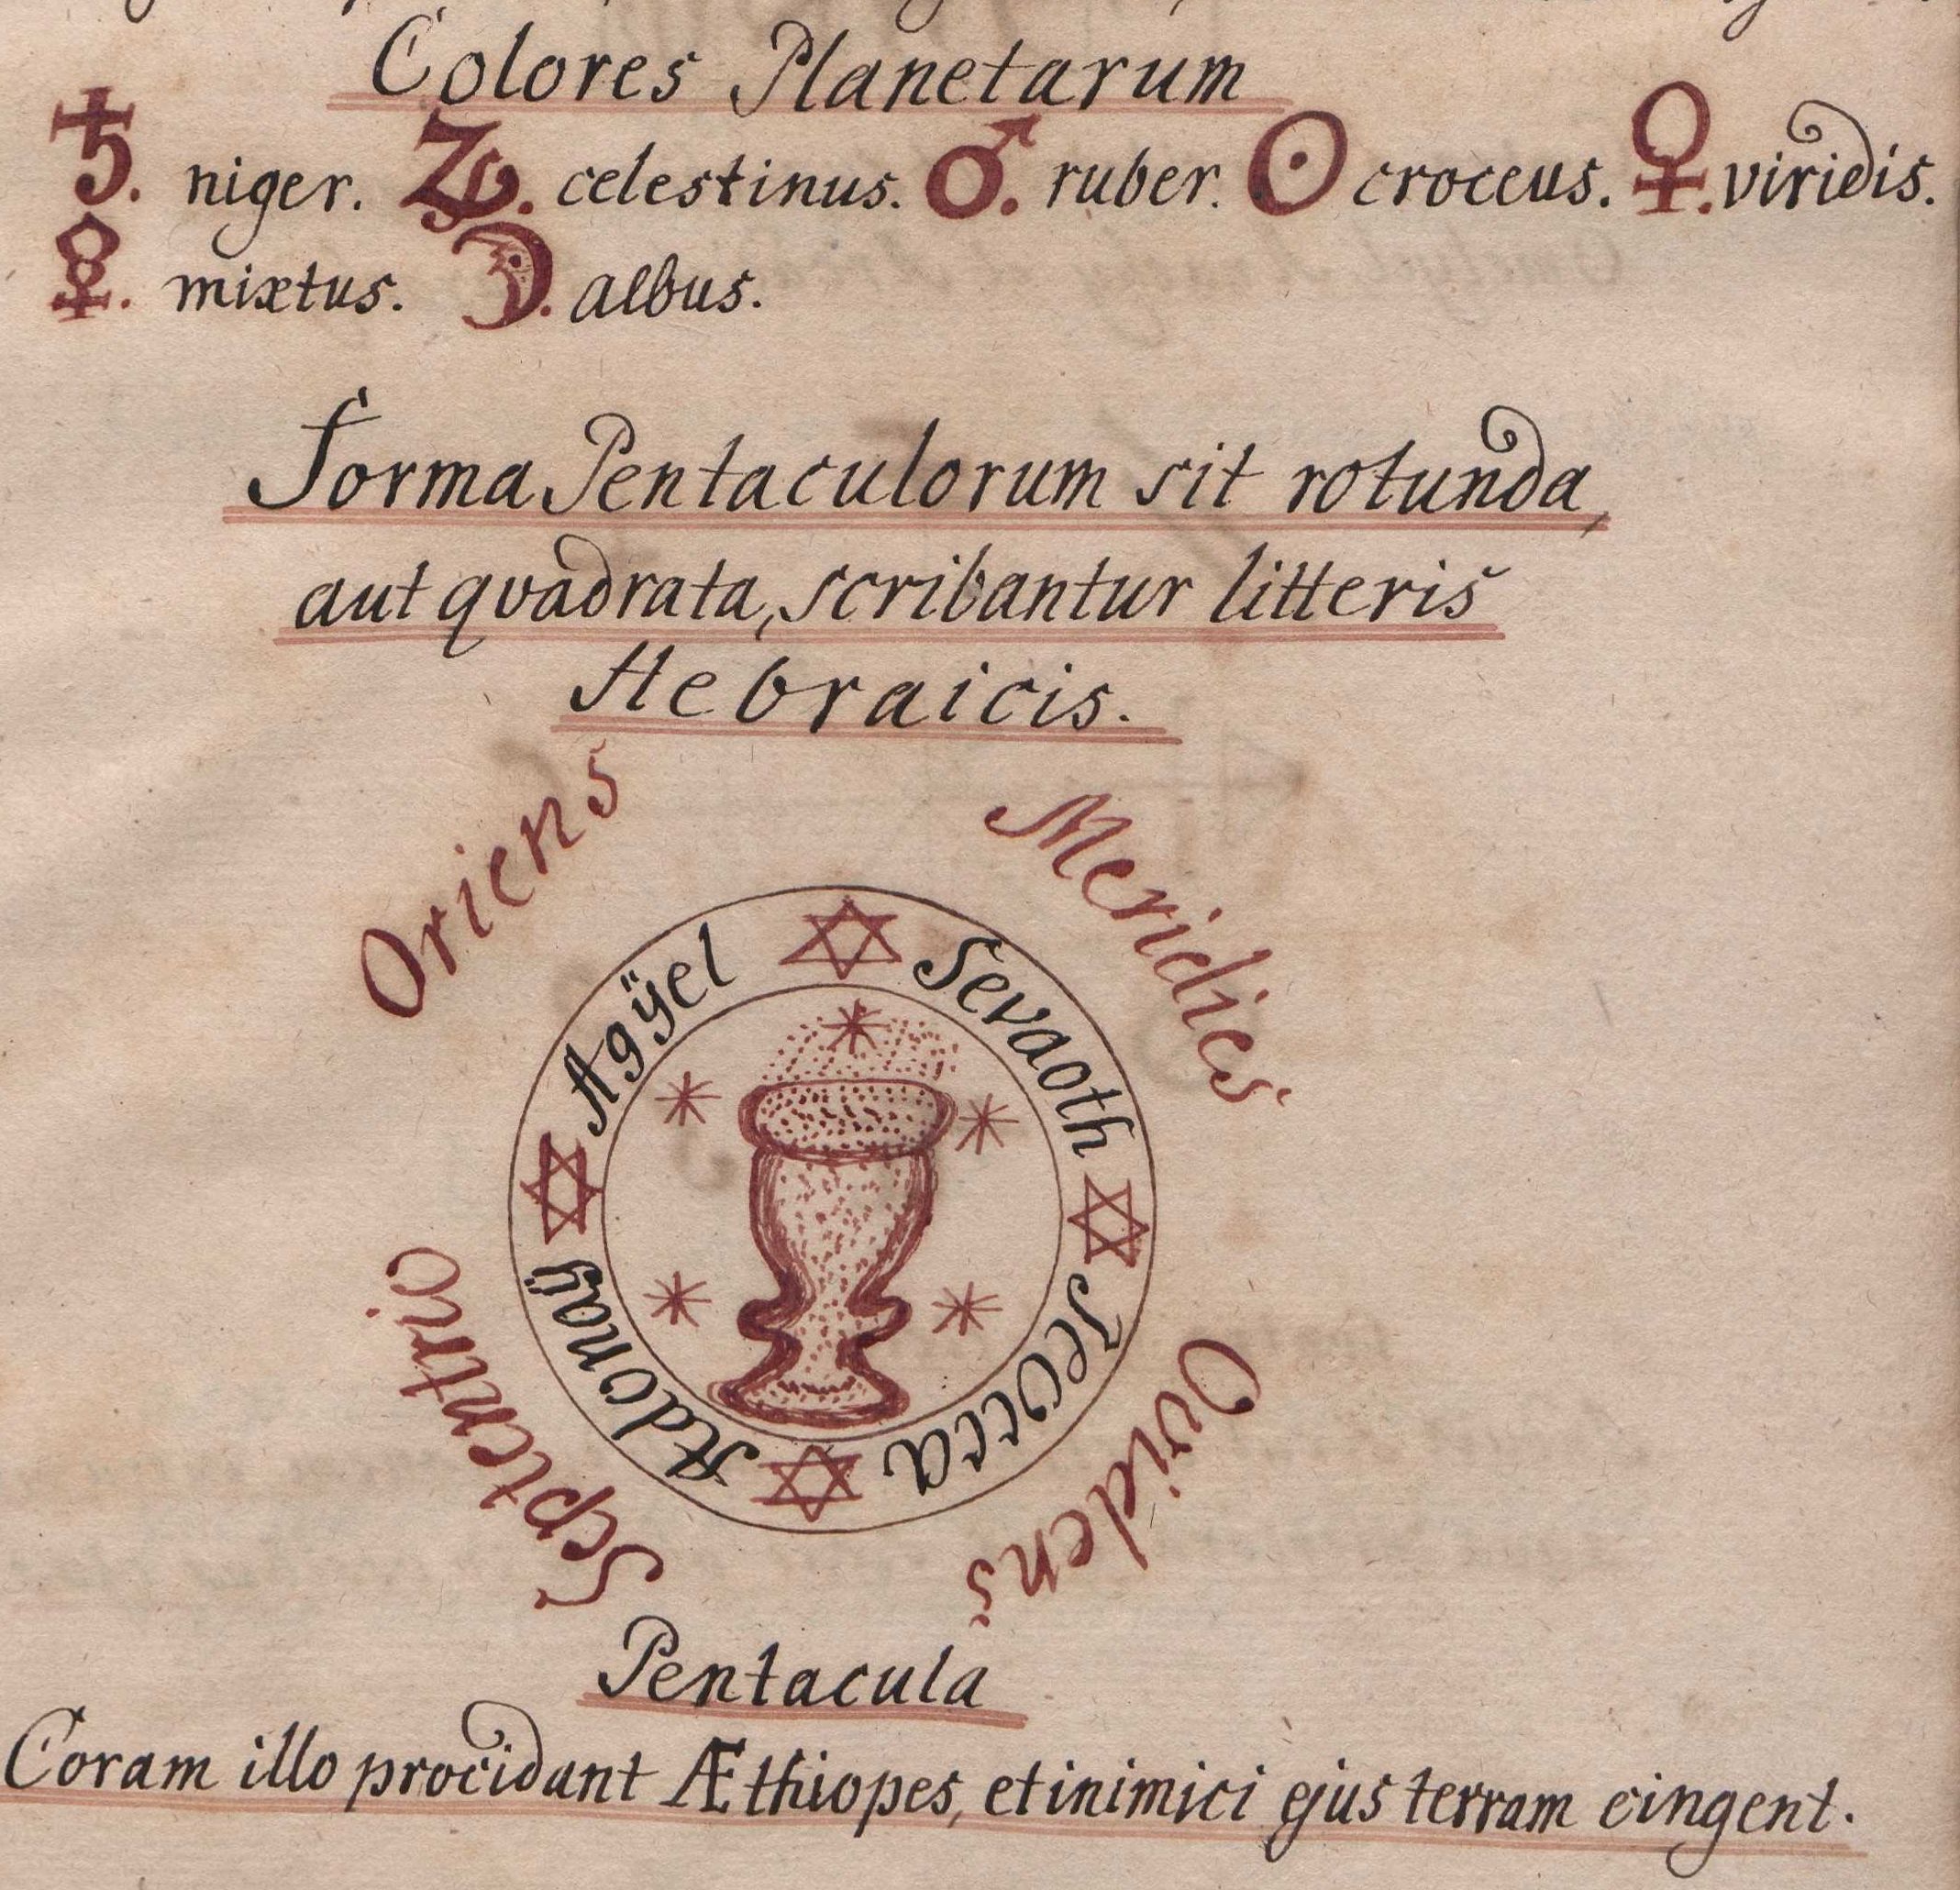 Colores Planetarum
♄. niger. ♃. celestinus. ♂. ruber. ☉ croceus. ♀. viridis.
☿. mixtus. ☽. albus.
Forma Pentaculorum sit rotunda,
aut qvadrata, scribantur litteris
Hebraicis.
Oriens
Meridies
Occidens
Septentrio
Agÿel
Sevaoth
Adonaÿ
Pentacula
Coram illo procidant Æthiopes, et inimici ejus terram cingent.